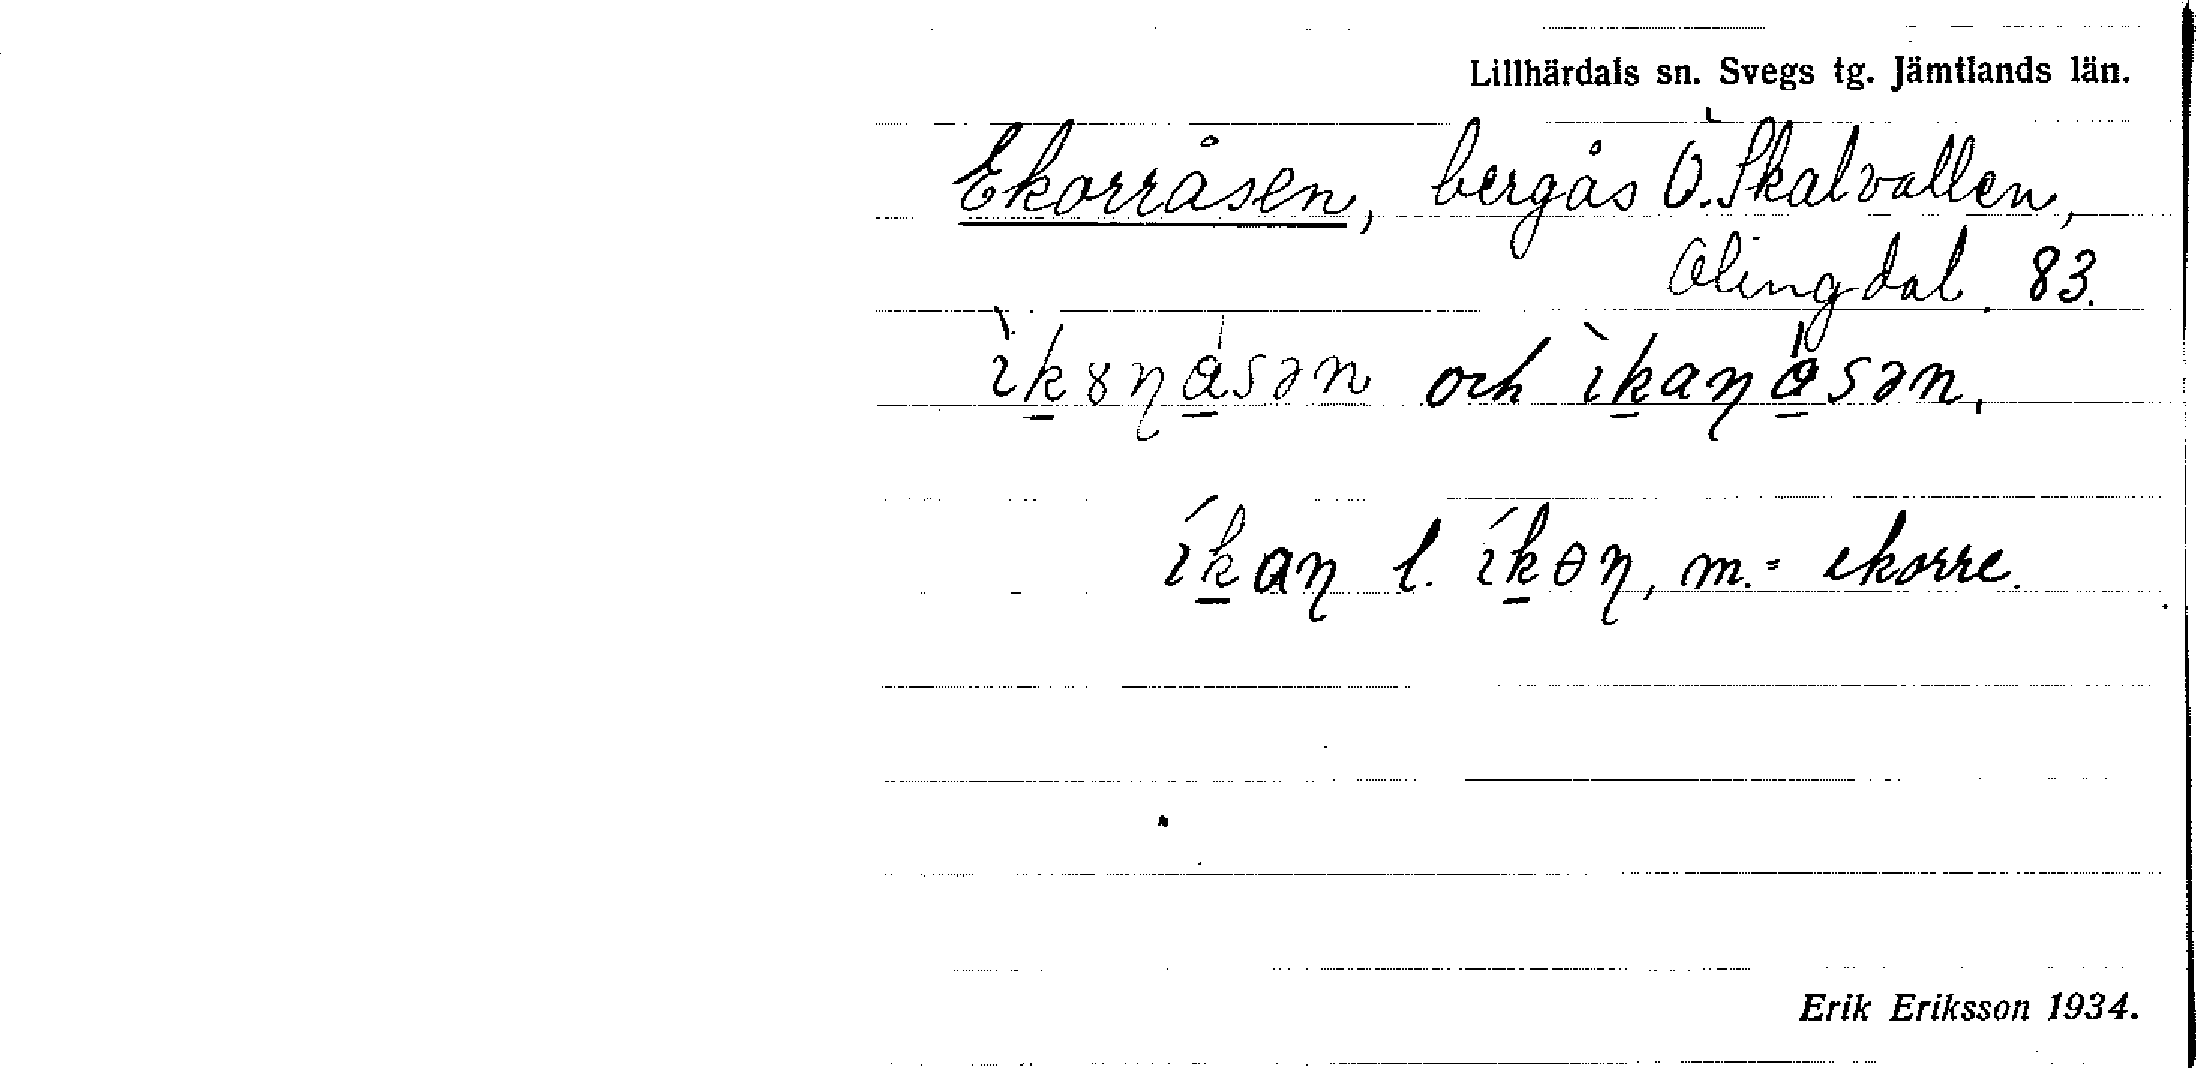 Lillhärdals sn. Svegs tg. Jämtlands län.
Ekorråsen, bergås Ö. Skalvallen,
Olingdal. 83.
ìkɤŋåsən och ìkaŋåsən.
íkaŋ l. íkɵŋ, m. = ekorre.
Erik Eriksson 1934.